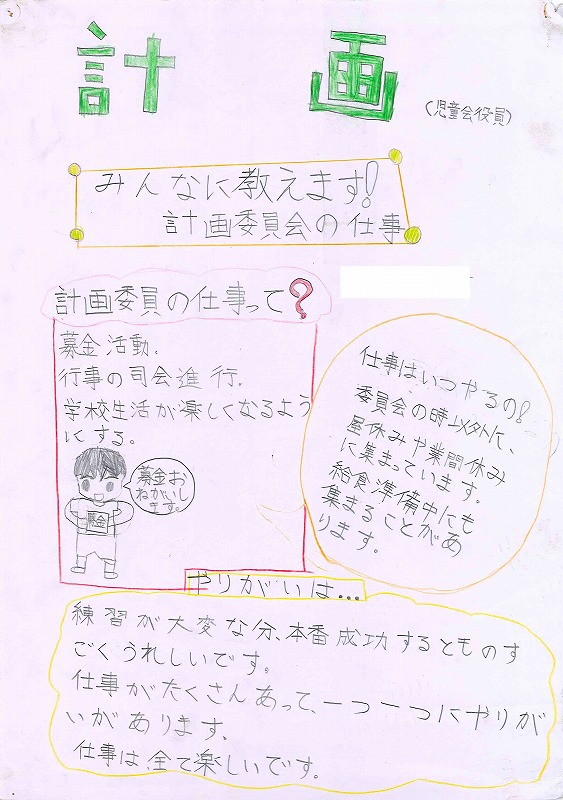 計画
（児童会役員）
みんなに教えます！
計画委員会の仕事
計画委員の仕事って？
募金活動。
行事の司会進行。
学校生活が楽しくなるよう
にする。
募金お
ねがいし
ます。
募金
仕事はいつやるの！
委員会の時以外に、
昼休みや業間休み
に集まっています。
給食準備中にも
集まることがあ
ります。
やりがいは…
練習が大変な分、本番成功するとものす
ごくうれしいです。
仕事がたくさんあって、一つ一つにやりが
いがあります。
仕事は、全て楽しいです。